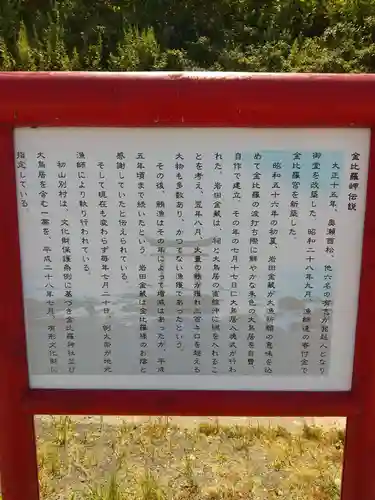 金比羅岬伝説
大正十五年、奥瀬酉松、他六名の有志が発起人となり
御堂を改築した。昭和二十八年九月、漁師達の寄付金で
金比羅宮を新築した。
昭和五十六年の初夏、岩田金蔵が大漁祈願の意味を込
めて金比羅の波打ち際に鮮やかな朱色の大鳥居を自費
自作で建立、その年の七月十七日に大鳥居入魂式が行わ
れた。岩田金蔵は、祠と大鳥居の直線沖に網を入れるこ
とを考え、翌年八月、大量の鮪が獲れ二百キロを超える
大物も多数あり、かつてない漁獲であったという。
その後、鮪漁はその年によって増減はあったが、平成
五年頃まで続いたという。岩田金蔵は金比羅様のお陰と
感謝していたと伝えられている。
そして現在も変わらず毎年七月二十日、例大祭が地元
漁師により執り行われている。
初山別村は、文化財保護条例に基づき金比羅神社並び
大鳥居を含む一帯を、平成二十八年七月、有形文化
指定している。